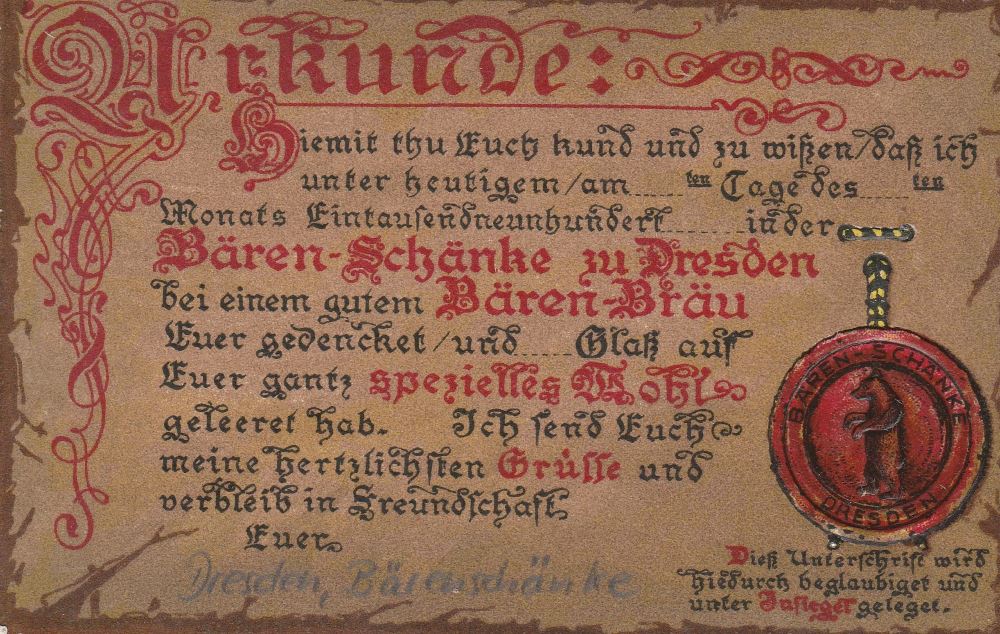 Urkunde:
Hiemit thu Euch kund und zu wißen/daß ich
unter heutigem/am......ten Tage des......ten
Monats Eintausendneunhundert.........in der
Bären-Schänke zu Dresden
bei einem gutem Bären-Bräu
Euer gedencket/und.....Glaß auf
Euer gantz spezielles Wohl
geleeret hab. Ich send Euch
meine hertzlichsten Grüsse und
verbleib in Freundschaft
Euer
Dresden, Bärenschänke
BÄREN-SCHÄNKE
DRESDEN
Dieß Unterschrift wird
hiedurch beglaubiget und
unter Insiegel geleget.